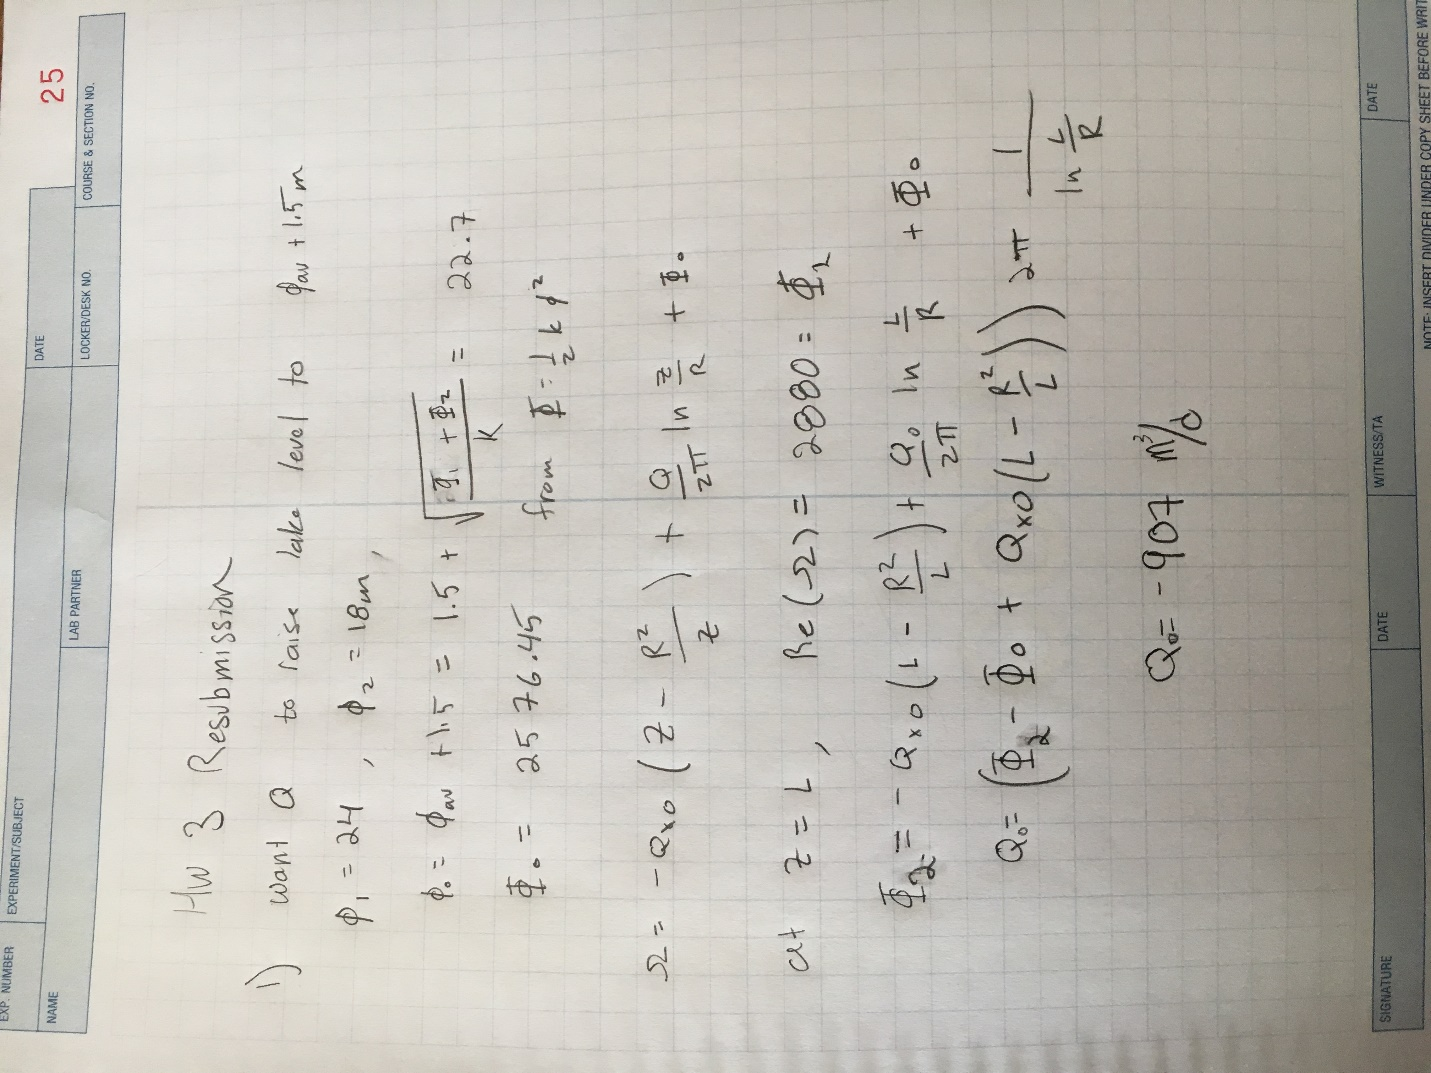 EXP. NUMBER
EXPERIMENT/SUBJECT
DATE
25
NAME
LAB PARTNER
LOCKER/DESK NO.
COURSE & SECTION NO.
HW 3 Resubmission
1) want Q to raise lake level to ϕav + 1.5m
ϕ1 = 24 , ϕ2 = 18m,
ϕ0 = ϕav + 1.5 = 1.5 + √((Φ1 + Φ2)/K) = 22.7
Φ0 = 2576.45 from Φ = 1/2 k ϕ²
Ω = -Qx0 (Z - R²/Z) + Q/2π ln Z/R + Φ0
at Z = L , Re(Ω) = 2880 = Φ2
Φ2 = -Qx0 (L - R²/L) + Q0/2π ln L/R + Φ0
Q0 = (Φ2 - Φ0 + Qx0 (L - R²/L)) 2π 1/(ln L/R)
Q0 = -907 m³/d
SIGNATURE
DATE
WITNESS/TA
DATE
NOTE: INSERT DIVIDER UNDER COPY SHEET BEFORE WRIT